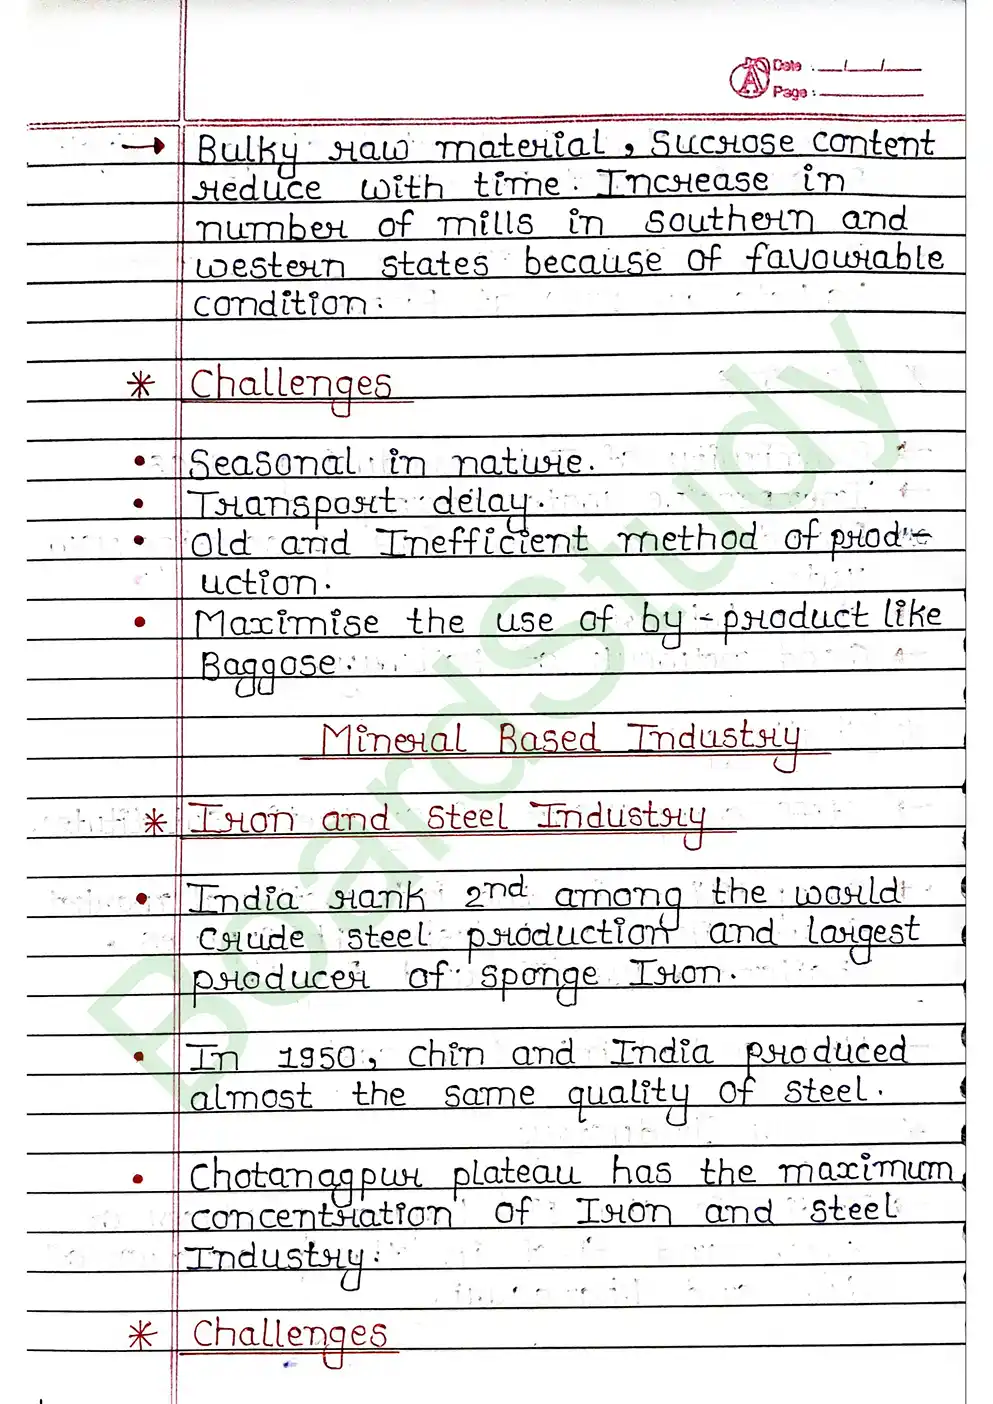 Date : __/__/__
Page :
→ Bulky raw material, Sucrose content
reduce with time. Increase in
number of mills in southern and
western states because of favourable
condition.
* Challenges
• Seasonal in nature.
• Transport delay.
• Old and Inefficient method of prod-
uction.
• Maximise the use of by-product like
Baggose.
Mineral Based Industry
* Iron and Steel Industry
• India rank 2nd among the world
crude steel production and largest
producer of sponge Iron.
• In 1950, chin and India produced
almost the same quality of steel.
• Chotanagpur plateau has the maximum
concentration of Iron and steel
Industry.
* Challenges
BoardStudy